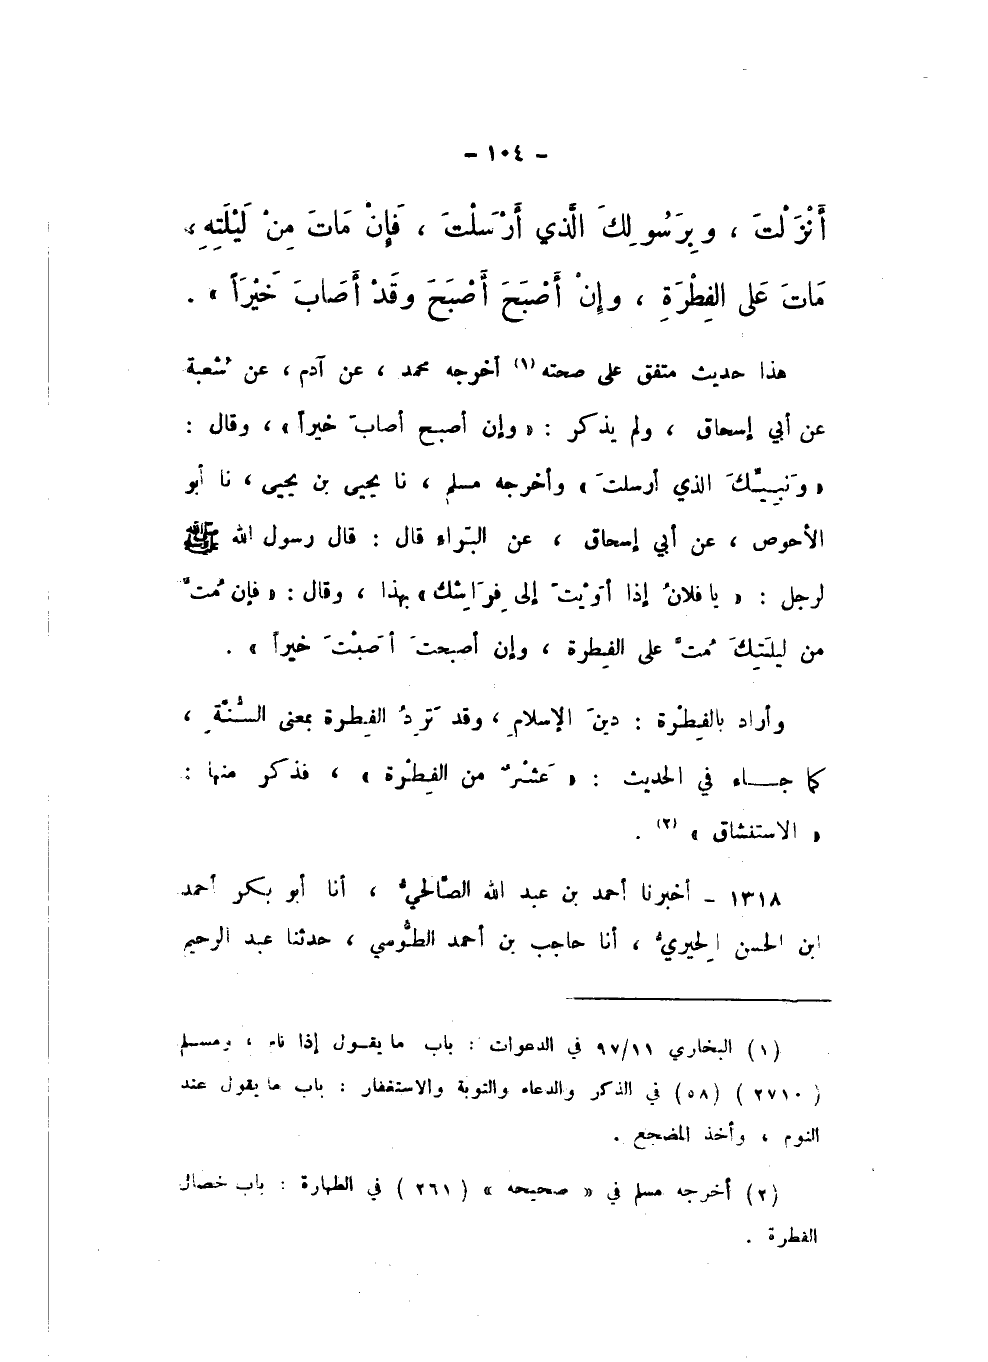 - ١٠٤ -
أَنْزَلْتَ ، وبِرَسُولِكَ الَّذي أَرْسَلْتَ ، فَإِنْ مَاتَ مِنْ لَيْلَتِهِ ،
مَاتَ عَلى الفِطْرَةِ ، وإِنْ أَصْبَحَ أَصْبَحَ وقَدْ أَصَابَ خَيْرَاً » .
هذا حديث متفق على صحته (١) أخرجه محمد ، عن آدم ، عن شُعبة
عن أبي إسحاق ، ولم يذكر : « وإن أصبح أصابَ خيراً » ، وقال :
« وَنَبِيِّكَ الذي أرسلتَ » وأخرجه مسلم ، نا يحيى بن يحيى ، نا أبو
الأحوص ، عن أبي إسحاق ، عن البَراء قال : قال رسول الله ﷺ
لرجل : « يا فلانُ إذا أوَيْتَ إلى فِرَاشِكَ » بهذا ، وقال : « فإن مُتَّ
من ليلَتِكَ مُتَّ على الفِطرة ، وإن أصبحتَ أصَبْتَ خيراً » .
وأراد بالفِطْرة : دينَ الإسلامِ ، وقد تَرِدُ الفِطرة بمعنى السُّنَّةِ ،
كما جـــاء في الحديث : « عَشْرٌ من الفِطْرة » ، فذكر منها :
« الاستنشاق » (٢) .
١٣١٨ - أخبرنا أحمد بن عبد الله الصَّالحيُّ ، أنا أبو بكر أحمد
ابن الحسن الحِيريُّ ، أنا حاجب بن أحمد الطُّوسي ، حدثنا عبد الرحيم
(١) البخاري ٩٧/١١ في الدعوات : باب ما يقـول إذا نام ، ومسـلم
( ٢٧١٠ ) (٥٨) في الذكر والدعاء والتوبة والاستغفار : باب ما يقول عند
النوم ، وأخذ المضجع .
(٢) أخرجه مسلم في « صحيحه » ( ٢٦١ ) في الطهارة : باب خصال
الفطرة .